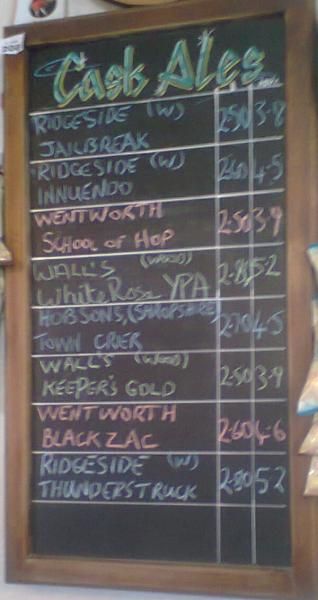 Cask Ales
RIDGESIDE (W) 2.50 3.8
JAILBREAK
RIDGESIDE (W) 2.60 4.5
INNUENDO
WENTWORTH 2.50 3.9
SCHOOL OF HOP
WALL'S (WOOD) 2.80 5.2
White Rose YPA
HOBSONS, (SHROPSHIRE) 2.70 4.5
TOWN CRIER
WALL'S (WOOD) 2.50 3.9
KEEPER'S GOLD
WENTWORTH 2.60 4.6
BLACK ZAC
RIDGESIDE (W) 2.80 5.2
THUNDERSTRUCK